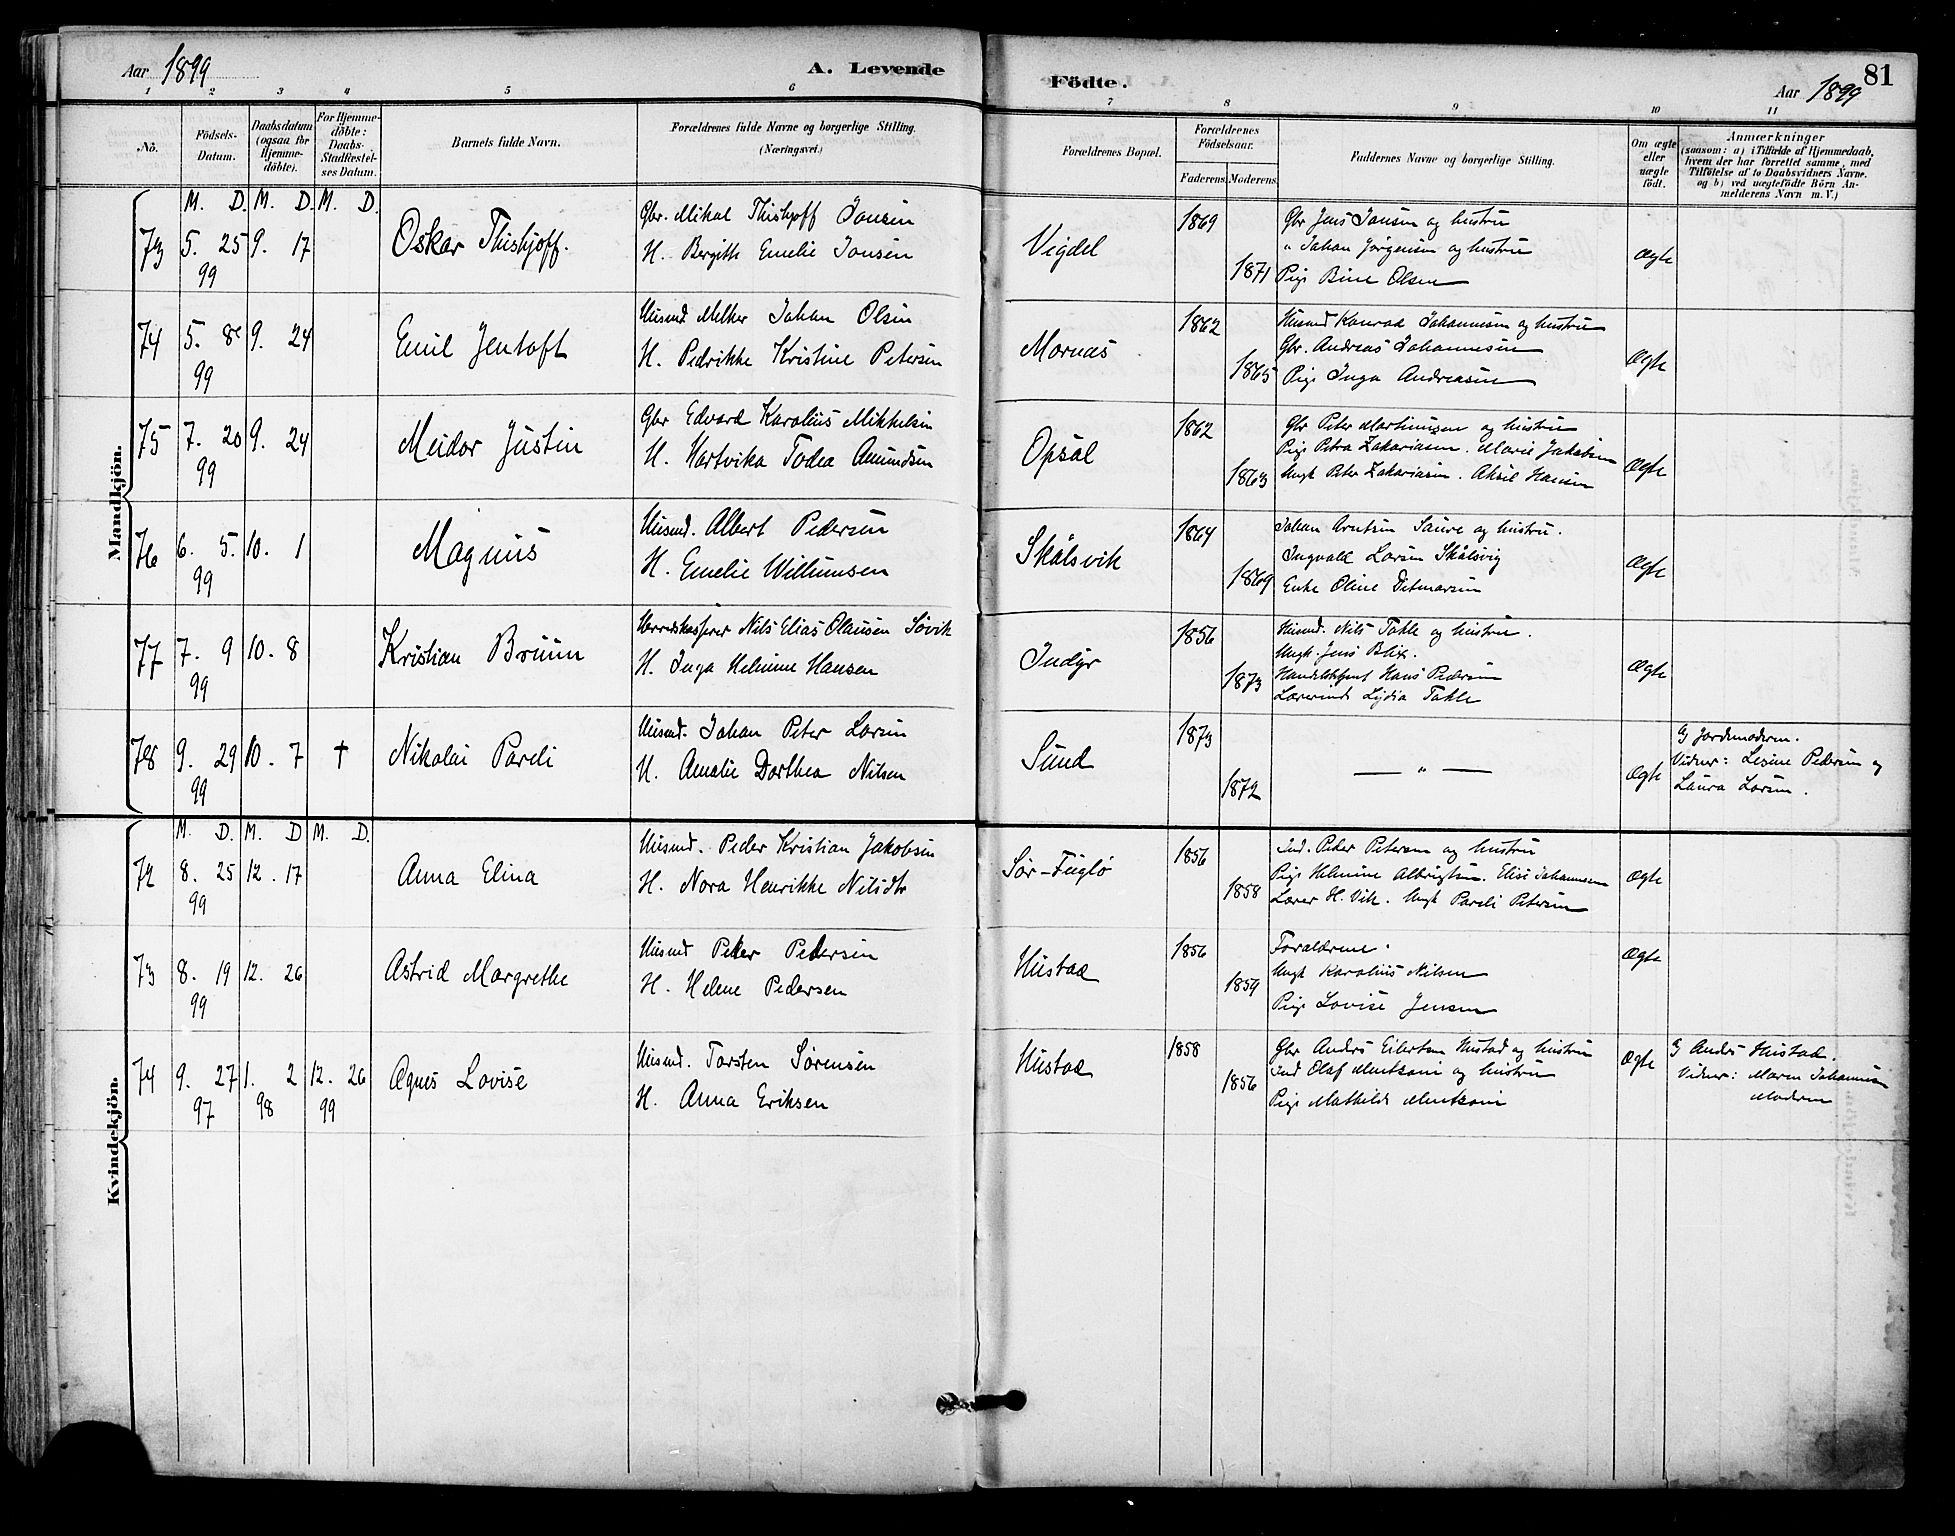 Aar 1899
A. Levende
Födte.
81
Aar 1899
1 2 3 4 5 6 7 8 9 10 11
No.
Födsels-Datum.
Daabsdatum (ogsaa for Hjemmedöbte).
For Hjemmedöbte: Daabs-Stadfæstelses Datum.
Barnets fulde Navn.
Forældrenes fulde Navne og borgerlige Stilling.
(Næringsvei.)
Forældrenes Bopæl.
Forældrenes Födselsaar.
Faderens. Moderens.
Faddernes Navne og borgerlige Stilling.
Om ægte eller uægte födt.
Anmærkninger
(saasom: a) i Tilfælde af Hjemmedaab, hvem der har forrettet samme, med Tilföielse af to Daabsvidners Navne. og b) ved uægtefödte Börn Anmelderens Navn m. V.)
Mandkjön.
M. D. M. D. M. D.
73 5. 25 99 9. 17 Oskar Thishjoff.
Gbr. Mikal Thishjoff Jonsen
H. Bergitte Emelie Jonsen
Vigdel 1869 1871
Gbr Jens Jonsen og hustru
" Johan Jørgensen og hustru
Pige Bine Olsen
Ægte
74 5. 8 99 9. 24 Emil Jentoft
Husmd Melker Johan Olsen
H. Pedrikke Kristine Petersen
Mornæs 1862 1865
Husmd Konrad Johannesen og hustru
Gbr. Andreas Johannesen
Pige Inga Andreasen
Ægte
75 7. 20 99 9. 24 Meidor Justin
Gbr Edvard Karolius Mikkelsen
H. Hartvika Todea Amundsen
Opsal 1862 1863
Gbr Peter Martinussen og hustru
Pige Petra Zakariasen. Marie Jakobsen
Ungk Peter Zakariasen. Aksel Hansen
Ægte
76 6. 5. 99 10. 1 Magnus
Husmd. Albert Pedersen
H. Emelie Willumsen
Skålsvik 1864 1869
Johan Arntsen Saure og hustru.
Ingvald Larsen Skålsvig
Enke Oline Ditmarsen
Ægte
77 7. 9 99 10. 8 Kristian Bruun
Herredskasserer Nils Elias Olausen Søvik
H. Inga Helmine Hansen
Indyr 1856 1873
Husmd. Nils Takle og hustru.
Ungk. Jens Blix.
Handelsfuct Hans Pedersen
Lærerinde Lydia Takle
Ægte
78 9. 29 99 10. 7 † Nikolai Pareli
Husmd. Johan Peter Larsen
H. Amalie Dorthea Nilsen
Sund 1873 1872
— " —
Ægte
Jordemoderen.
Vidner: Lesine Pedersen og
Laura Larsen.
Kvindekjön.
M. D. M. D M. D.
72 8. 25 99 12. 17 Anna Elina
Husmd. Peder Kristian Jakobsen
H. Nora Henrikke Nilsdtr
Sør-Fuglø 1856 1858
Ind. Peder Petersen og hustru
Pige Helmine Albrigtsen. Elise Johannesen
Lærer H. Vik. Ungk Pareli Petersen
Ægte
73 8. 19 99 12. 26 Astrid Margrethe
Husmd Peder Pedersen
H. Helene Pedersen
Hustad 1856 1859
Forældrene.
Ungk Karolius Nilsen
Pige Lovise Jensen
Ægte
74 9. 27 97 1. 2 98 12. 26 99 Agnes Lovise
Husmd. Torsten Sørensen
H. Anna Eriksen
Hustad 1858 1856
Gbr Anders Eilertsen Hustad og hustru
Ind Olaf Mentzoni og hustru
Pige Mathilde Mentzoni
Ægte
Anders Hustad.
Vidner: Maren Johannesen
Moderen